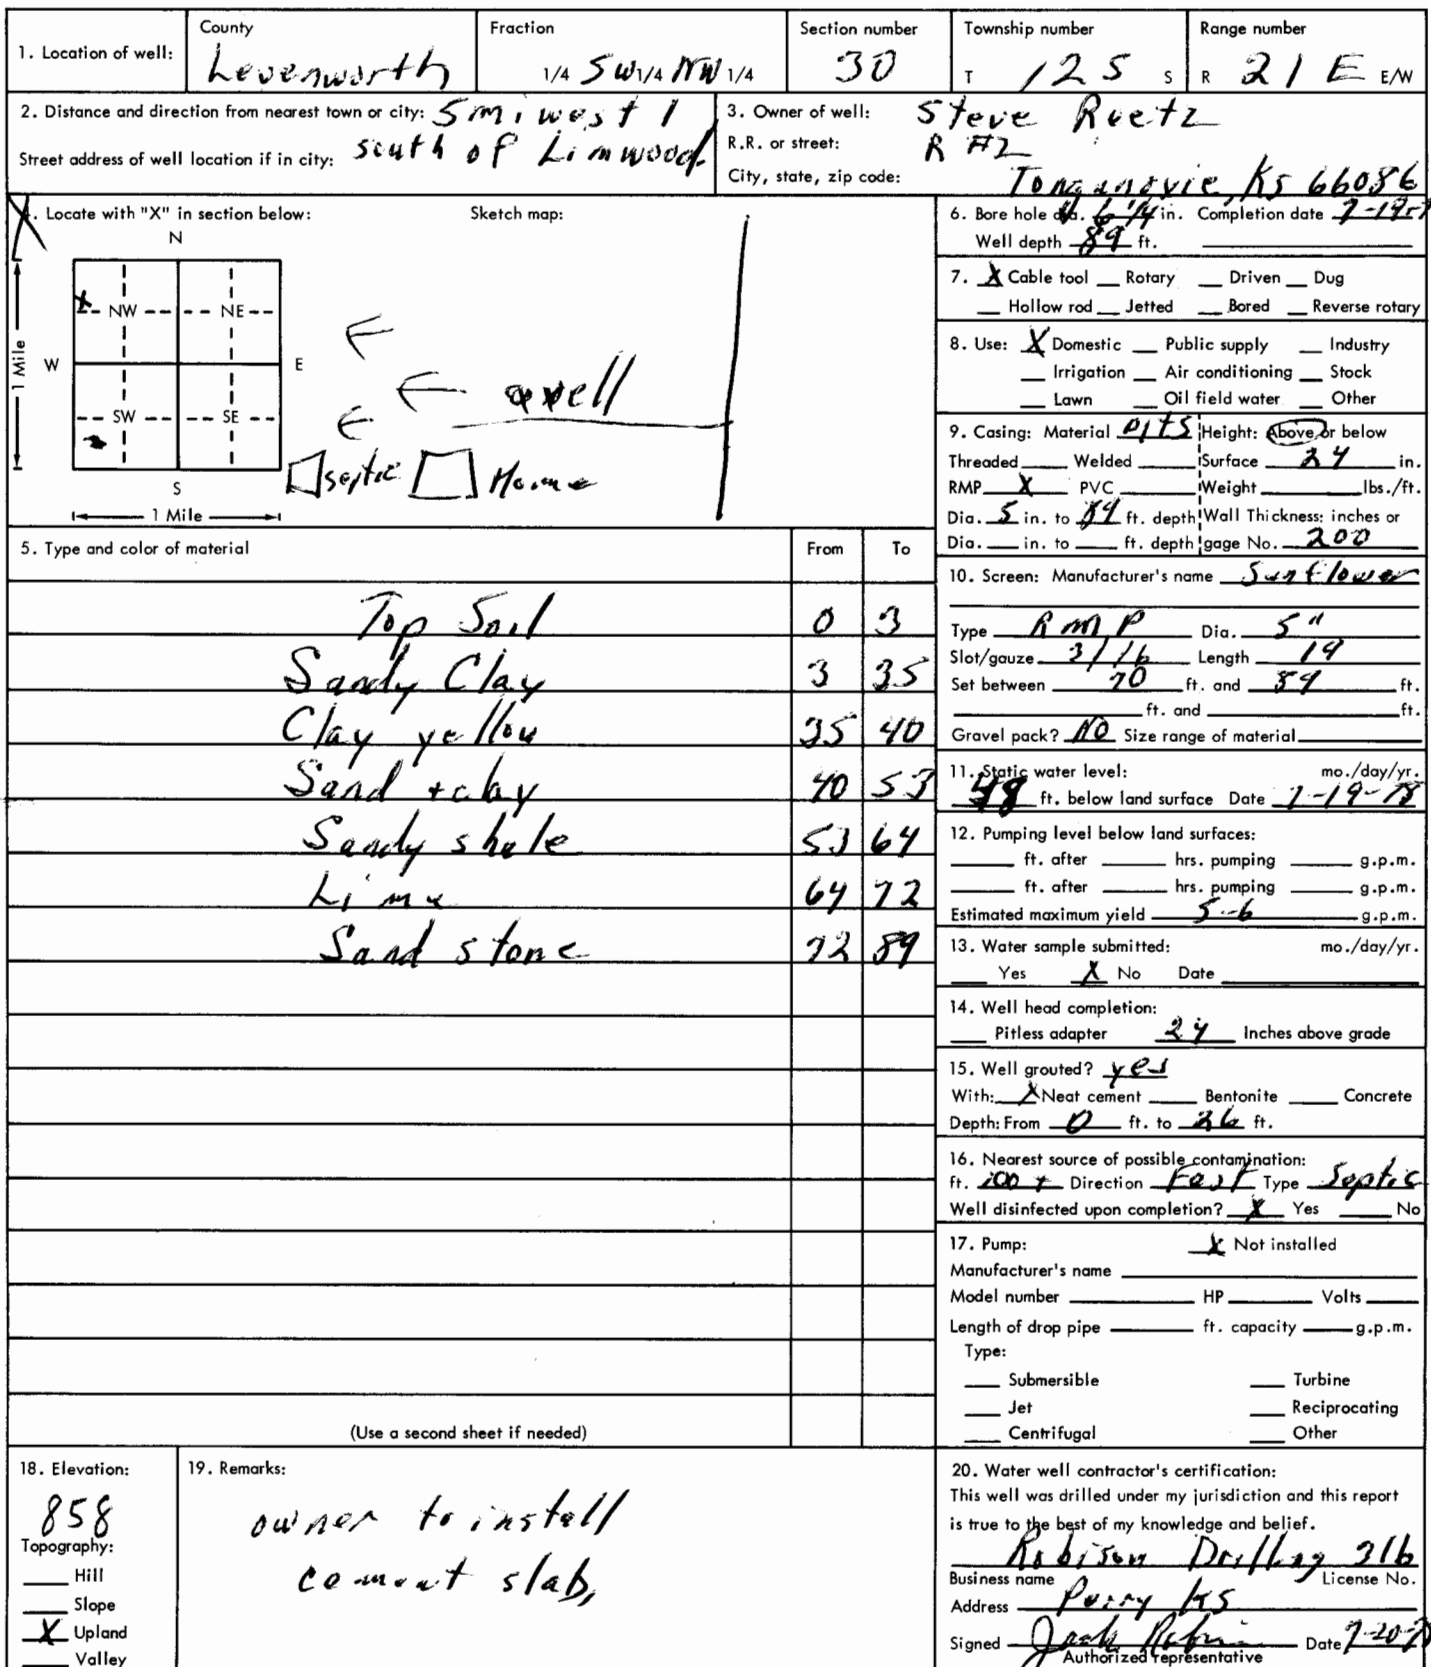 1. Location of well:
County
Levenworth
Fraction
1/4 SW 1/4 NW 1/4
Section number
30
Township number
T 12 S S
Range number
R 21 E E/W
2. Distance and direction from nearest town or city: 5 mi west 1
Street address of well location if in city: south of Linwood
3. Owner of well: Steve Ruetz
R.R. or street: R #2
City, state, zip code: Tonganoxie, Ks 66086
4. Locate with "X" in section below:
Sketch map:
N
X
NW NE
W E
1 Mile
SW SE
S
1 Mile
well
septic
Home
5. Type and color of material From To
Top Soil 0 3
Sandy Clay 3 35
Clay yellow 35 40
Sand + clay 40 53
Sandy shale 53 64
Lime 64 72
Sand stone 72 89
(Use a second sheet if needed)
6. Bore hole dia. 6 1/4 in. Completion date 7-19-7
Well depth 89 ft.
7. X Cable tool Rotary Driven Dug
Hollow rod Jetted Bored Reverse rotary
8. Use: X Domestic Public supply Industry
Irrigation Air conditioning Stock
Lawn Oil field water Other
9. Casing: Material Height: Above or below
Threaded Welded Surface 24 in.
RMP X PVC Weight lbs./ft.
Dia. 5 in. to 89 ft. depth Wall Thickness: inches or
Dia. in. to ft. depth gage No. 200
10. Screen: Manufacturer's name Sunflower
Type RMP Dia. 5"
Slot/gauze 3/16 Length 19
Set between 70 ft. and 89 ft.
ft. and ft.
Gravel pack? NO Size range of material
11. Static water level: mo./day/yr.
48 ft. below land surface Date 7-19-78
12. Pumping level below land surfaces:
ft. after hrs. pumping g.p.m.
ft. after hrs. pumping g.p.m.
Estimated maximum yield 5-6 g.p.m.
13. Water sample submitted: mo./day/yr.
Yes X No Date
14. Well head completion:
Pitless adapter 24 Inches above grade
15. Well grouted? yes
With: X Neat cement Bentonite Concrete
Depth: From 0 ft. to 26 ft.
16. Nearest source of possible contamination:
ft. 100 + Direction East Type Septic
Well disinfected upon completion? X Yes No
17. Pump: X Not installed
Manufacturer's name
Model number HP Volts
Length of drop pipe ft. capacity g.p.m.
Type:
Submersible Turbine
Jet Reciprocating
Centrifugal Other
18. Elevation:
858
Topography:
Hill
Slope
X Upland
Valley
19. Remarks:
owner to install
cement slab,
20. Water well contractor's certification:
This well was drilled under my jurisdiction and this report
is true to the best of my knowledge and belief.
Robison Drilling 316
Business name License No.
Address Perry KS
Signed Jack Robison Date 7-20-78
Authorized representative